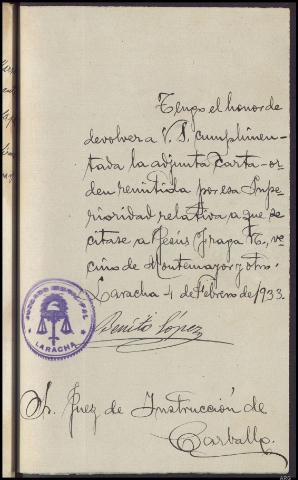 Tengo el honor de
devolver a V. S. cumplimen-
tada la adjunta carta-or-
den remitida por esa Supe-
rioridad relativa a que se
citase a Jesús Fraga
cino de Montemayor y otro.
Laracha 4 de Febrero de 1933.
JUZGADO MUNICIPAL
LARACHA
Benito López
Sr. Juez de Instrucción de
Carballo.